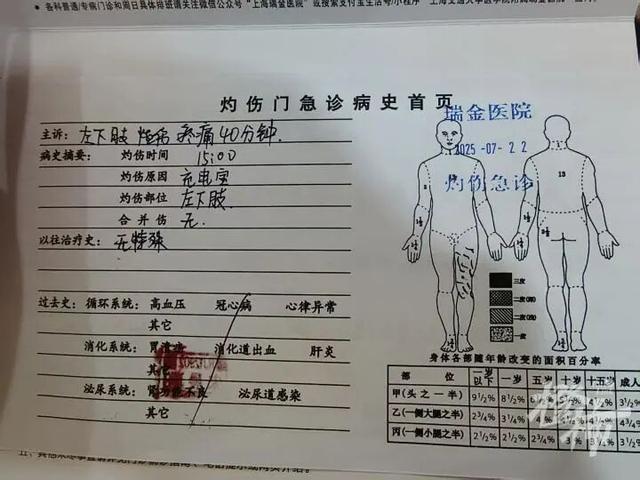 各科普通/专病门诊和周日具体排班请关注微信公众号"上海瑞金医院"或搜索支付宝生活号/小程序
灼伤门急诊病史首页
瑞金医院
2025-07-22
灼伤急诊
主诉: 左下肢 疼痛40分钟.
病史摘要: 灼伤时间 15:00
灼伤原因 充电宝
灼伤部位 左下肢.
合并伤 无.
以往治疗史: 无特殊
过去史: 循环系统: 高血压 冠心病 心律异常
其它
消化系统: 胃溃疡 消化道出血 肝炎
其它
泌尿系统: 肾功能不良 泌尿道感染
其它
13
三度
二度(深)
二度(浅)
一度
身体各部随年龄改变的面积百分率
部位 一岁以下 一岁 五岁 十岁 十五岁 成人
甲(头之一半) 9½% 8½% 4½% 3½%
乙(一侧大腿之半) 2¾% 3¼% 4% 4¾%
丙(一侧小腿之半) 2½% 2½% 2¾% 3% 3½%